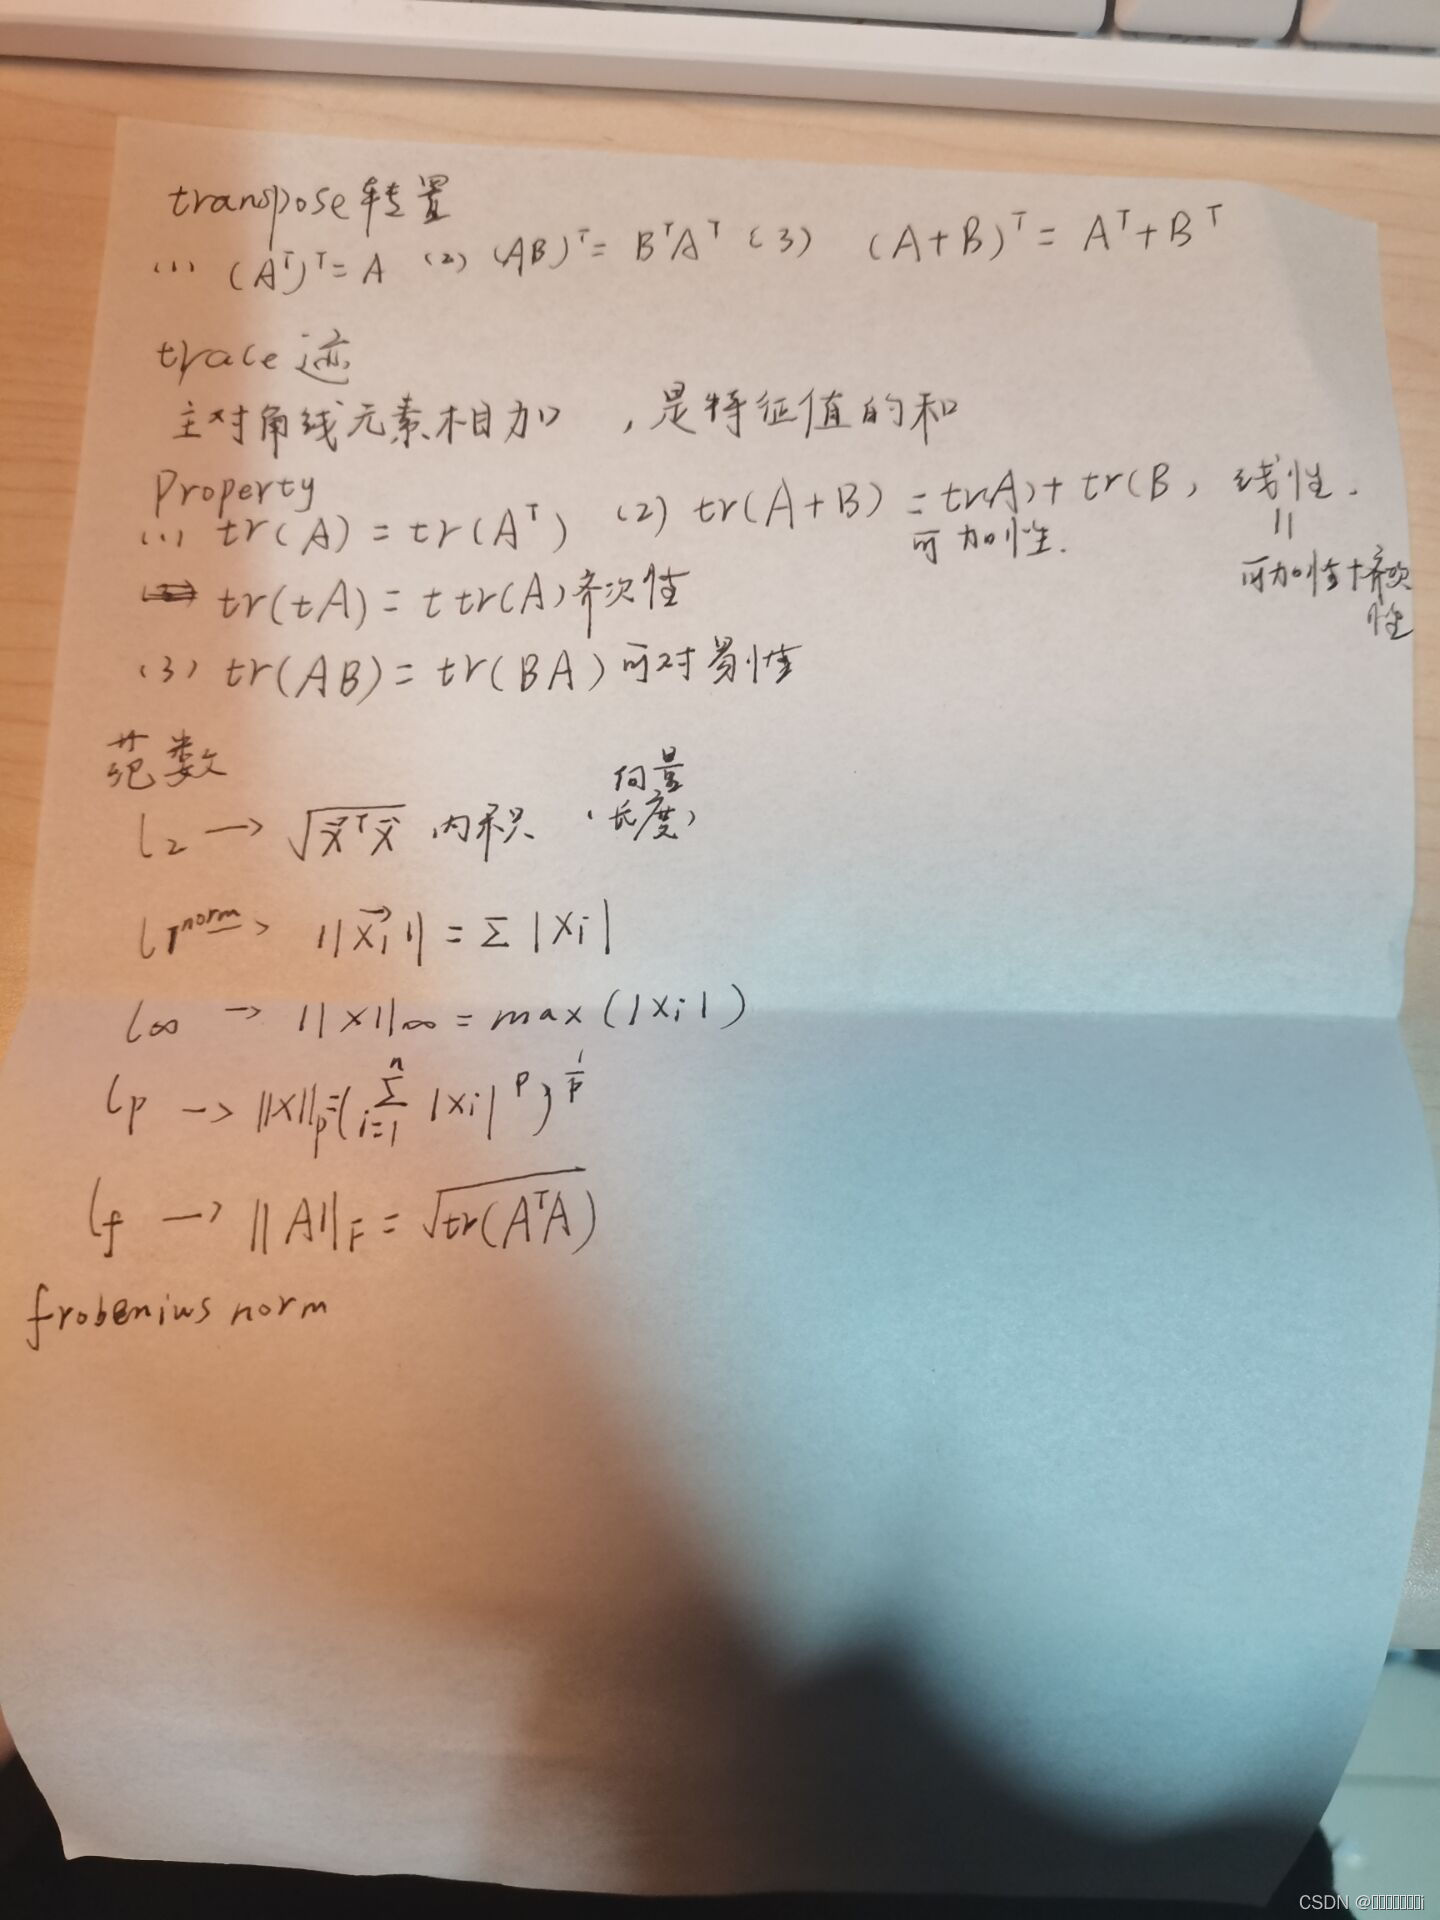 transpose转置
(1) (Aᵀ)ᵀ= A (2) (AB)ᵀ= BᵀAᵀ (3) (A+B)ᵀ= Aᵀ+Bᵀ
trace迹
主对角线元素相加 ,是特征值的和
Property
(1) tr(A) = tr(Aᵀ) (2) tr(A+B) = tr(A)+ tr(B, 线性.
可加性.
||
可加性+齐次
性
tr(tA) = t tr(A) 齐次性
(3) tr(AB) = tr(BA) 可对易性
范数
向量
l₂ → √x⃗ᵀx⃗ 内积 (长度)
l₁ norm → ||x⃗₁|| = Σ |xi|
l∞ → ||x||∞ = max(|xi|)
lp → ||x||p=(Σⁿi=1 |xi|ᵖ)^1/p
lf → ||A||F = √tr(AᵀA)
frobenius norm
CSDN @